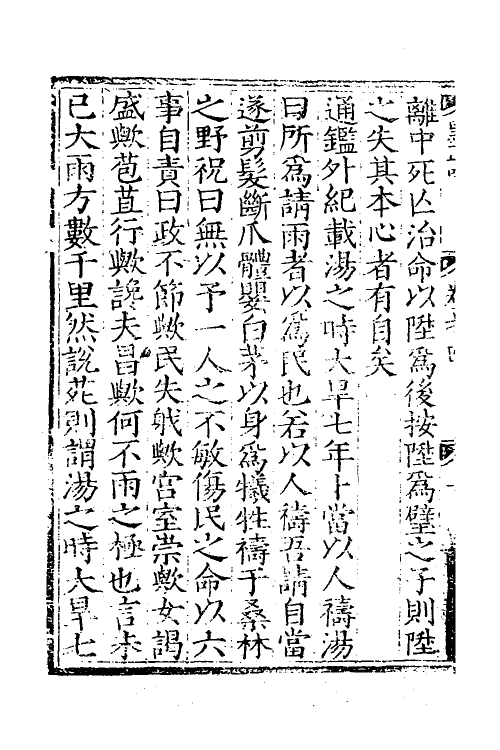 離中死亾治命以陞爲後按陞爲璧之子則陞
之失其本心者有自矣
通鑑外紀載湯之時大旱七年卜當以人禱湯
曰所爲請雨者以爲民也若以人禱吾請自當
遂剪髮斷爪體嬰白茅以身爲犧牲禱于桑林
之野祝曰無以予一人之不敏傷民之命以六
事自責曰政不節歟民失職歟宫室崇歟女謁
盛歟苞苴行歟讒夫昌歟何不雨之極也言未
已大雨方數千里然說苑則謂湯之時大旱七